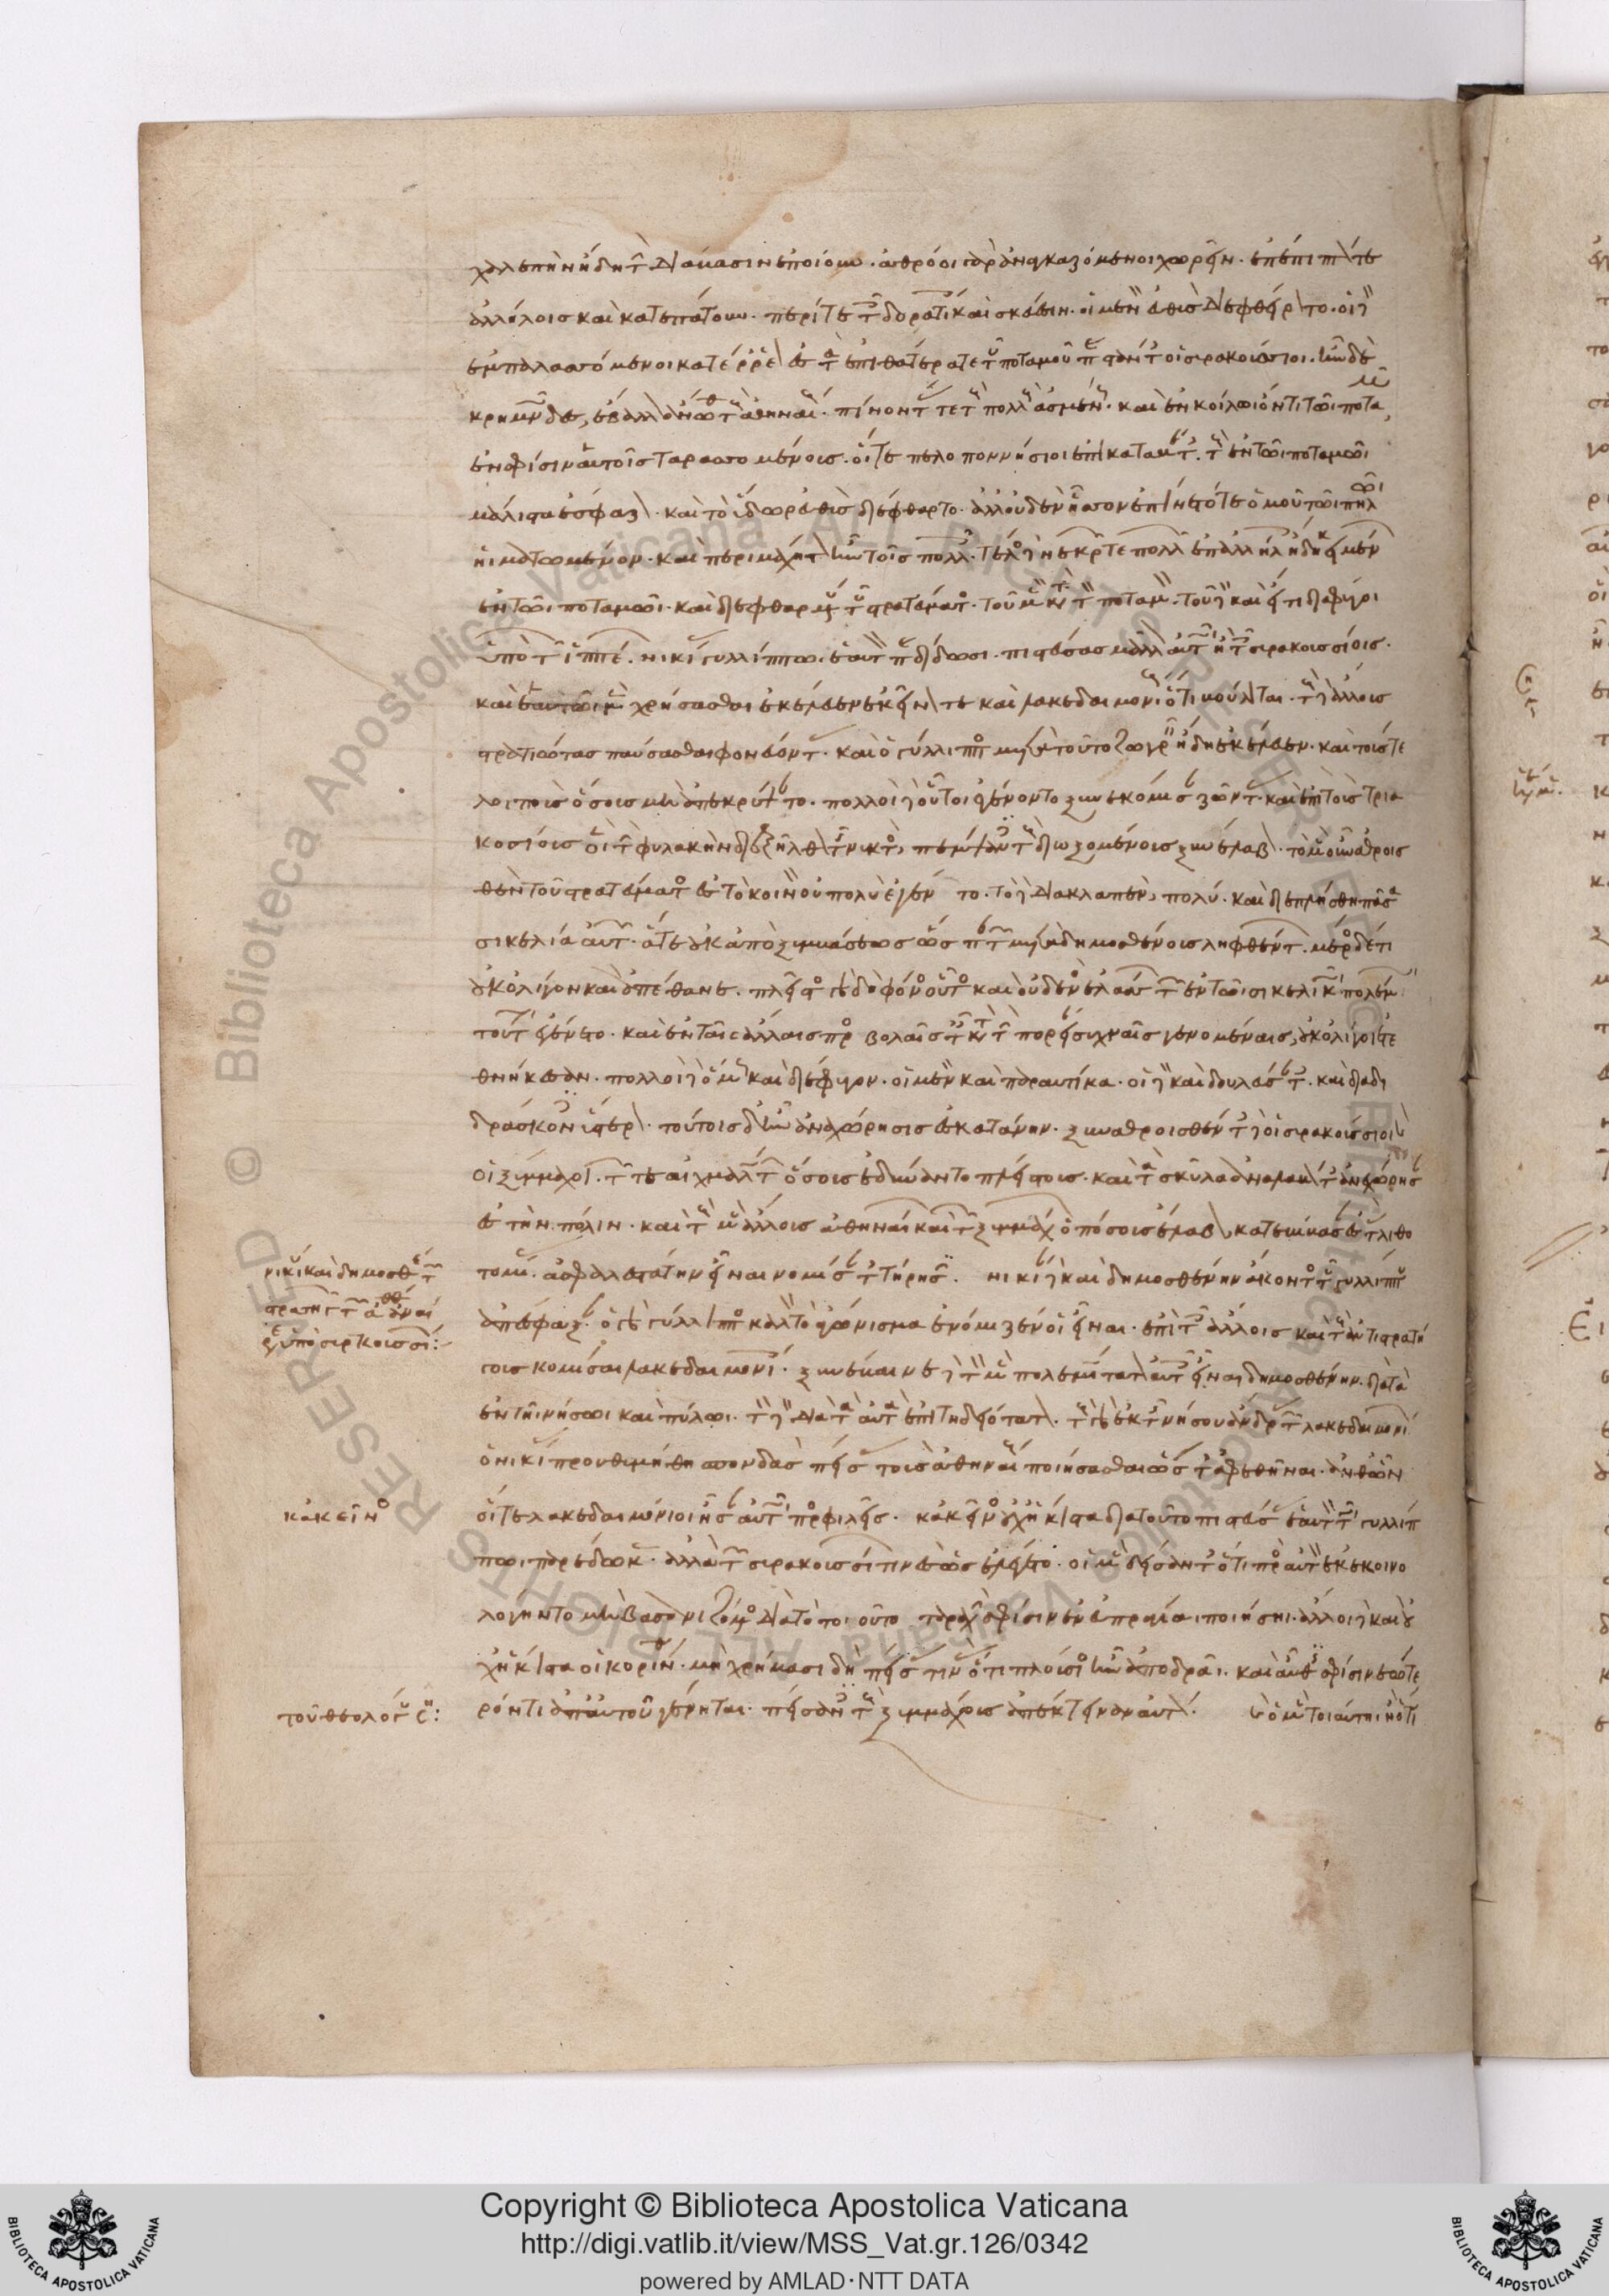 χαλεπὴν ἤδη τ διάβασιν ἐποίουν. ἀθρόοι γὰρ ἀναγκαζόμενοι χωρεῖν. ἐπέπιπτόν τε
ἀλλήλοις καὶ κατεπάτουν. περί τε τ δορατί καὶ σκεύεσιν. οἱ μὲν εὐθὺς διεφθείροντο. οἱ δὲ
ἐμπαλασσόμενοι κατέρρεον. ἐς τὰ ἐπὶ θάτερά τε τοῦ ποταμοῦ παραστάντες οἱ συρακούσιοι. ἦν δὲ
κρημνῶδες, ἔβαλλον ἄνωθεν τοὺς ἀθηναί. πίνοντάς τε τοὺς πολλοὺς ἀσμένους. καὶ ἐν κοίλωι ὄντι τῶι ποταμῶ
ἐν σφίσιν αὐτοῖς ταρασσομένους. οἵ τε πελοποννήσιοι ἐπικαταβάντες. τοὺς ἐν τῶι ποταμῶι
μάλιστα ἔσφαζον. καὶ τὸ ὕδωρ εὐθὺς διέφθαρτο. ἀλλ' οὐδὲν ἧσσον ἐπίνετό τε ὁμοῦ τῶι πηλῶι
ἡιματωμένον. καὶ περιμάχητον ἦν τοῖς πολλοῖς. τέλος δὲ νεκρῶν τε πολλῶν ἐπ' ἀλλήλοις ἤδη κειμένων
ἐν τῶι ποταμῶι. καὶ διεφθαρμένου τοῦ στρατεύματος. τοῦ μὲν κατὰ τὸν ποταμόν. τοῦ δὲ καὶ εἴ τι διαφύγοι
ὑπὸ τῶν ἱππέων. νικίας γυλίππωι ἑαυτὸν παραδίδωσι. πιστεύσας μᾶλλον αὐτῶ ἢ τοῖς συρακουσίοις.
καὶ ἑαυτῶι μὲν χρήσασθαι ἐκέλευεν ἐκεῖνόν τε καὶ λακεδαιμονίους ὅτι βούλονται. τοὺς δὲ ἄλλους
στρατιώτας παύσασθαι φονεύοντας. καὶ ὁ γύλιππος μετὰ τοῦτο ζωγρεῖν ἤδη ἐκέλευεν. καὶ τούς τε
λοιποὺς ὅσους μὴ ἀπεκρύψαντο. πολλοὶ δὲ οὗτοι ἐγένοντο ξυνεκόμισαν ζῶντας. καὶ ἐπὶ τοὺς τρια
κοσίους οἳ τὴν φυλακὴν διεξῆλθον τῆς νυκτός, πέμψαντες τοὺς διωξομένους ξυνέλαβον. τὸ μὲν οὖν ἁθροισ
θὲν τοῦ στρατεύματος ἐς τὸ κοινὸν οὐ πολὺ ἐγένετο. τὸ δὲ διακλαπὲν, πολύ. καὶ διεπλήσθη πᾶσα
σικελία αὐτῶν. ἅτε οὐκ ἀπὸ ξυμβάσεως ὥσπερ τῶν μετὰ δημοσθένους ληφθέντων. μέρος δέ τι
οὐκ ὀλίγον καὶ ἀπέθανε. πλεῖστος γὰρ δὴ φόνος οὗτος καὶ οὐδενὸς ἐλάσσων τῶν ἐν τῶι σικελικῶ πολέμω
τούτω ἐγένετο. καὶ ἐν ταῖς ἄλλαις προσβολαῖς ταῖς κατὰ τὴν πορείαν συχναῖς γενομέναις, οὐκ ὀλίγοι ἐτε
θνήκεσαν. πολλοὶ δὲ ὅμως καὶ διέφυγον. οἱ μὲν καὶ παραυτίκα. οἱ δὲ καὶ δουλεύσαντες. καὶ διαδι
δράσκοντες ὕστερον. τούτοις δ' ἦν ἀναχώρησις ἐς κατάνην. ξυναθροισθέντες δὲ οἱ συρακούσιοι καὶ
οἱ ξύμμαχοι. τῶν τε αἰχμαλώτων ὅσους ἐδύναντο πλείστους. καὶ τὰ σκῦλα ἀναλαβόντες ἀνεχώρησαν
ἐς τὴν πόλιν. καὶ τοὺς μὲν ἄλλους ἀθηναίων καὶ τῶν ξυμμάχων ὁπόσους ἔλαβον, κατεβίβασαν ἐς τὰς λιθο
τομίας. ἀσφαλεστάτην εἶναι νομίσαντες τήρησιν. νικίαν δὲ καὶ δημοσθένην ἄκοντος τοῦ γυλίππου
ἀπέσφαξαν. ὁ γὰρ γύλιππος καλὸν τὸ ἀγώνισμα ἐνόμιζέν οἱ εἶναι. ἐπὶ τοῖς ἄλλοις καὶ τοὺς ἀντιστρατή
γους κομίσαι λακεδαιμονίοις. ξυνέβαινε δὲ τὸν μὲν πολεμιώτατον αὐτοῖς εἶναι δημοσθένην. διὰ τὰ
ἐν τῆι νήσωι καὶ πύλωι. τὸν δὲ διὰ τὰ αὐτὰ ἐπιτηδειότατον. τοὺς γὰρ ἐκ τῆς νήσου ἄνδρας τῶν λακεδαιμονίων
ὁ νικίας προυθυμήθη σπονδὰς πείσας τοὺς ἀθηναίους ποιήσασθαι ὥστε ἀφεθῆναι. ἀνθ' ὧν
οἵ τε λακεδαιμόνιοι ἦσαν αὐτῶ προσφιλεῖς. κἀκεῖνος οὐχ ἥκιστα διὰ τοῦτο πιστεύσας ἑαυτὸν τῶ γυλίπ
πωι παρέδωκεν. ἀλλὰ τῶν συρακουσίων τινὲς ὡς ἐλέγετο. οἱ μὲν δείσαντες ὅτι πρὸς αὐτὸν ἐκεκοινο
λόγηντο μὴ βασανιζόμενος διὰ τὸ τοιοῦτο ταραχὴν σφίσιν ἐν εὐπραγίαι ποιήσηι. ἄλλοι δὲ καὶ οὐ
χ ἥκιστα οἱ κορίνθιοι. μὴ χρήμασι δὴ πείσας τινὰς ὅτι πλούσιος ἦν ἀποδρᾶι. καὶ αὖθις σφίσι νεώτε
ρόν τι ἀπ' αὐτοῦ γένηται. πείσαντες τοὺς ξυμμάχους ἀπέκτειναν αὐτόν. καὶ ὁ μὲν τοιαύτηι ἢ ὅτι
νικίου καὶ δημοσθένους τῶν
στρατηγῶν τῶν ἀθηναίων
ὑπὸ συρακουσίων:
κἀκεῖνος
τοῦ θεολόγου:
Copyright © Biblioteca Apostolica Vaticana
http://digi.vatlib.it/view/MSS_Vat.gr.126/0342
powered by AMLAD·NTT DATA